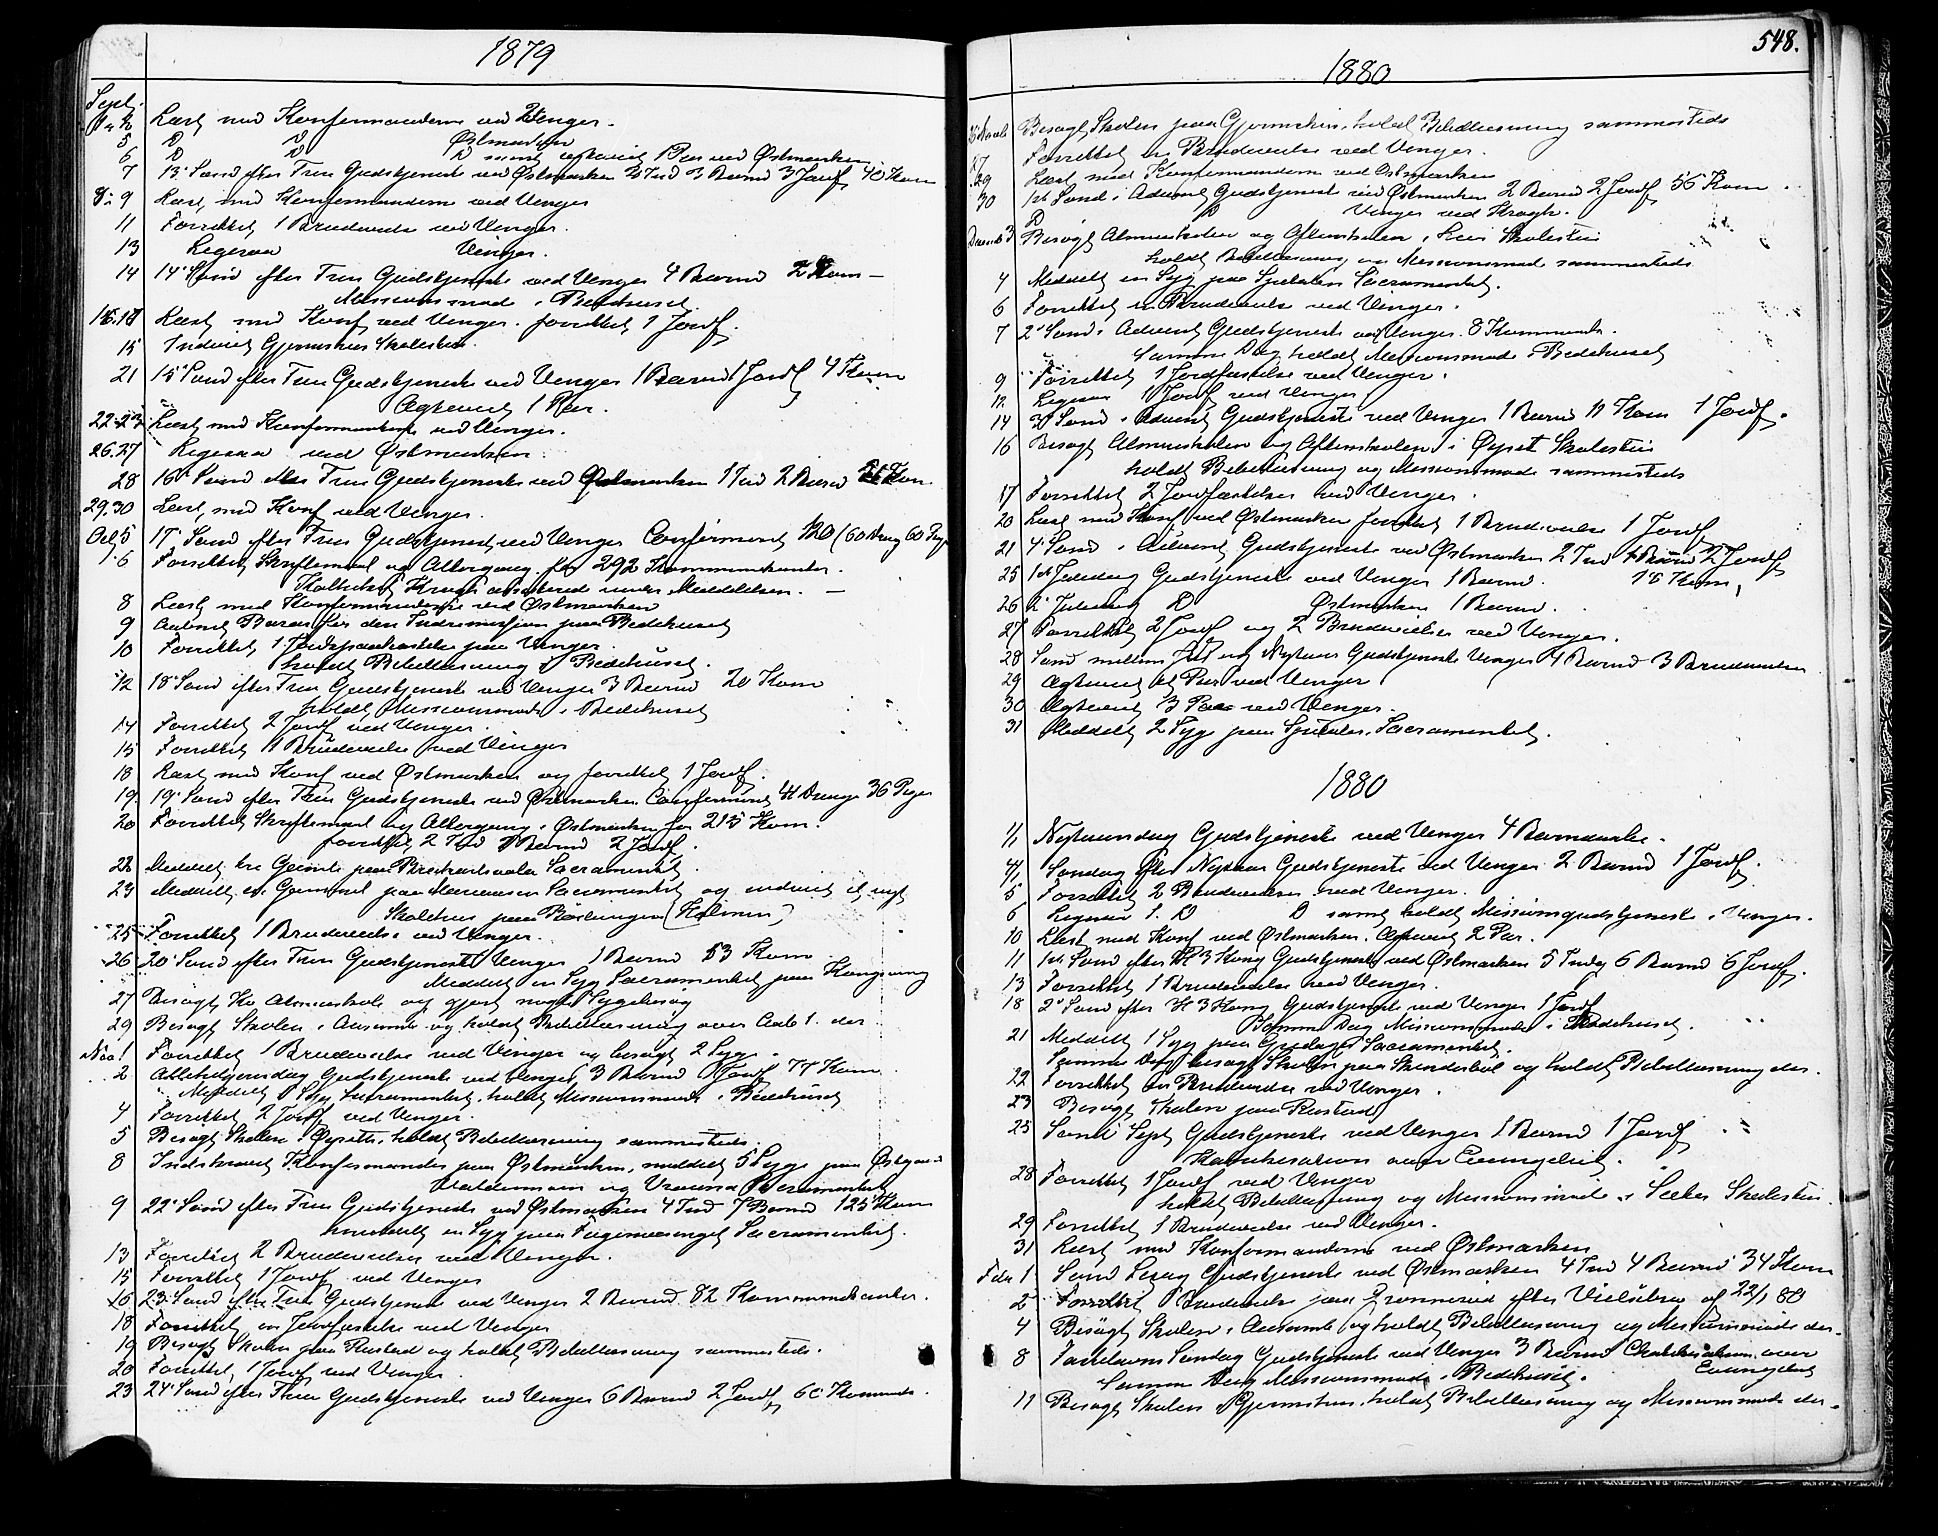 1879
Sept.
1 & 2 Læst med Konfermanderne ved Vinger.
5 D D Østmarken
6 D D D samt Par ved Østmarken
7 13' Sønd efter Trin Gudstjeneste ved Østmarken 2 Ind 3 Barnd 3 Jordf 40 Kom
8 9 Læst med Konfermanderne ved Vinger
11 Forrettet 1 Brudevielse ved Vinger.
13 Ligesaa Vinger.
14 14' Sønd efter Trin Gudstjeneste ved Vinger 4 Barnd 2 Kom
Missionsmøde i Bedehuset
Læst med Konf ved Vinger. forrettet 1 Jordf.
15 Indviet Gjermshus Skolestue.
21 15' Sønd efter Trin Gudstjeneste ved Vinger 1 Barnd 1 Jordf 4 Kom
Ægteviet 1 Par.
22-23 Læst med Konfermanderne ved Vinger.
26.27 Ligesaa ved Østmarken
28 16' Sønd efter Trin Gudstjeneste ved Østmarken 1 Ind 2 Barnd Kom.
29.30 Læst med Konf ved Vinger.
Oct 5 17' Sønd efter Trin Gudstjenest ved Vinger Confirmeret 120 (60 Dreng 60 Pige
6 Forrettet Skriftemaal og Altergang for 292 Kommunikanter.
Krogh assisterede under Meddelelsen.
8 Læst med Konfermanderne ved Østmarken
9 Aabnet Bazar for den Indremission paa Bedehuset
10 Forrettet 1 Jordspaakastelse paa Vinger
holdt Bibellæsning i Bedehuset.
12 18' Sønd efter Trin Gudstjeneste ved Vinger 3 Barnd 20 Kom
holdt Missionsmøde i Bedehuset
14 Forrettet 2 Jordf ved Vinger.
15 Forrettet 1 Brudevielse ved Vinger
18 Læst med Konf ved Østmarken og forrettet 1 Jordf.
19. 19' Sønd efter Trin Gudstjeneste ved Østmarken Confermeret 41 Drenge 36 Piger
20 Forrettet Skriftemaal og Altergang i Østmarken for 215 Kom.
forrettet 2 Ind Barnd 2 Jordf.
22 Meddelt tre Gamle paa Sacramentet.
23 Meddelt en Gammel paa Sacramentet og indviet et nyt
Skolehus paa (Holmen)
25 Forrettet 1 Brudevielse ved Vinger.
26 20' Sønd efter Trin Gudstjeneste Vinger 1 Barnd 53 Kom
Meddelt en Syg Sacramentet paa Kongsvng
27 Besøgt Kv Almueskole og gjort nogle Sygebesøg
29 Besøgt Skolen i Austmark og holdt Bibellæsning over 1. der
Nov 1 Forrettet 1 Brudevielse ved Vinger og besøgt 2 Syge.
2 Allehelgensdag Gudstjeneste ved Vinger 3 Barnd Jordf 77 Kom
Meddelt 1 Syg Sacramentet. holdt Missionsmøde i Bedehuset
4 Forrettet 2 Jordf ved Vinger.
5 Besøgt Skolen i Øyset, holdt Bibellæsning sammesteds.
8 Indskrevet Konfermander paa Østmarken, meddelt 5 Syge paa
og Sacramentet
9 22' Sønd efter Trin Gudstjeneste ved Østmarken 4 Ind 7 Barnd 125 Kom
meddelt en Syg paa Sacramentet.
13 Forrettet 2 Brudevielser ved Vinger.
15 Forrettet 1 Jordf ved Vinger
16 23' Sønd efter Trin Gudstjeneste ved Vinger 2 Barnd 82 Kommunikanter.
18 Forrettet en Jordfæstelse ved Vinger
19 Besøgt Skolen paa Rustad og holdt Bibellæsning sammesteds.
20 Forrettet 1 Jordf ved Vinger.
23 24' Sønd efter Trin Gudstjeneste ved Vinger 6 Barnd 2 Jordf 60 Kommunik.
548.
1880
Besøgt Skolen paa Gjermshus, holdt Bibellæsning sammesteds
27 Forrettet en Brudevielse ved Vinger.
29 Læst med Konfermanderne ved Østmarken
30 1ste Sønd i Advent Gudstjeneste ved Østmarken 2 Barnd 2 Jordf 56 Kom.
D D Vinger ved Krogh.
Decemb 3 Besøgt Almueskolen og Aftenskolen i Skolestue
holdt Bibellæsning og Missionsmøde sammesteds
4 Meddelt en Syg paa Sacramentet.
6 Forrettet en Brudevielse ved Vinger.
7 2' Sønd i Advent Gudstjeneste ved Vinger. 8 Kommunik.
Samme Dag holdt Missionsmøde i Bedehuset
9 Forrettet 1 Jordfæstelse ved Vinger.
12 Ligesaa 1 Jordf ved Vinger
14 3' Sønd i Advent Gudstjeneste ved Vinger 1 Barnd 11 Kom 1 Jordf.
16 Besøgt Almueskolen og Aftenskolen i Øyset Skolestue
holdt Bibellæsning og Missionsmøde sammesteds
17 Forrettet 2 Jordfæstelser ved Vinger.
20 Læst med Konf ved Østmarken forrettet 1 Brudevielse 1 Jordf
21 4' Sønd i Advent Gudstjeneste ved Østmarken 2 Ind Barnd 2 Jordf
25 1ste Juledag Gudstjeneste ved Vinger 1 Barnd. 18 Kom.
26 2' Juledag D Østmarken 1 Barnd.
27 Forrettet 2 Jordf og 2 Brudevielser ved Vinger.
28 Sønd mellem Jul og Nytaar Gudstjeneste Vinger 4 Barnd 3 Brudevielser
29 Ægteviet et Par ved Vinger
30 Ægteviet 3 Par ved Vinger.
31 Meddelt 2 Syge paa Sacramentet.
1880
1/1 Nytaarsdag Gudstjeneste ved Vinger 4 Barndaabe.
4/1 Søndag efter Nytaar Gudstjeneste ved Vinger 2 Barnd 1 Jordf.
5 Forrettet 2 Brudevielser ved Vinger.
6 Ligesaa 1. D D samt holdt Missionsgudstjeneste i Vinger.
10 Læst med Konf ved Østmarken. Ægteviet 2 Par.
11 1ste Sønd efter H 3 Kong Gudstjeneste ved Østmarken 5 Indg 6 Barnd 6 Jordf.
13 Forrettet 1 Brudevielse ved Vinger.
18 2' Sønd efter H 3 Kong Gudstjeneste ved Vinger 1 Jordf
Samme Dag Missionsmøde i Bedehuset.
21 Meddelt 1 Syg paa Sacramentet.
Samme Dag besøgt Skolen paa Skinderbøl og holdt Bibellæsning der.
22 Forrettet en Brudevielse ved Vinger.
23 Besøgt Skolen paa Rustad
25 Sønd Sept Gudstjeneste ved Vinger 1 Barnd 1 Jordf
Katekisation over Evangeliet.
28 Forrettet 1 Jordf ved Vinger
holdt Bibellæsning og Missionsmøde i Skolestue.
29 Forrettet 1 Brudevielse ved Vinger.
31 Læst med Konformanderne ved Østmarken
Feb 1 Sønd Sexag Gudstjeneste ved Østmarken 4 Ind 4 Barnd 34 Kom
2 Forrettet Brudevielse paa efter af 22/1 80
4 Besøgt Skolen i Austmark og holdt Bibellæsning og Missionsmøde der.
8 Fastelavns Søndag Gudstjeneste ved Vinger 3 Barnd Chatekisation over
Evangeliet
Samme Dag Missionsmøde i Bedehuset.
11 Besøgt Skolen i Gjermshus, holdt Bibellæsning og Missionsmøde der.